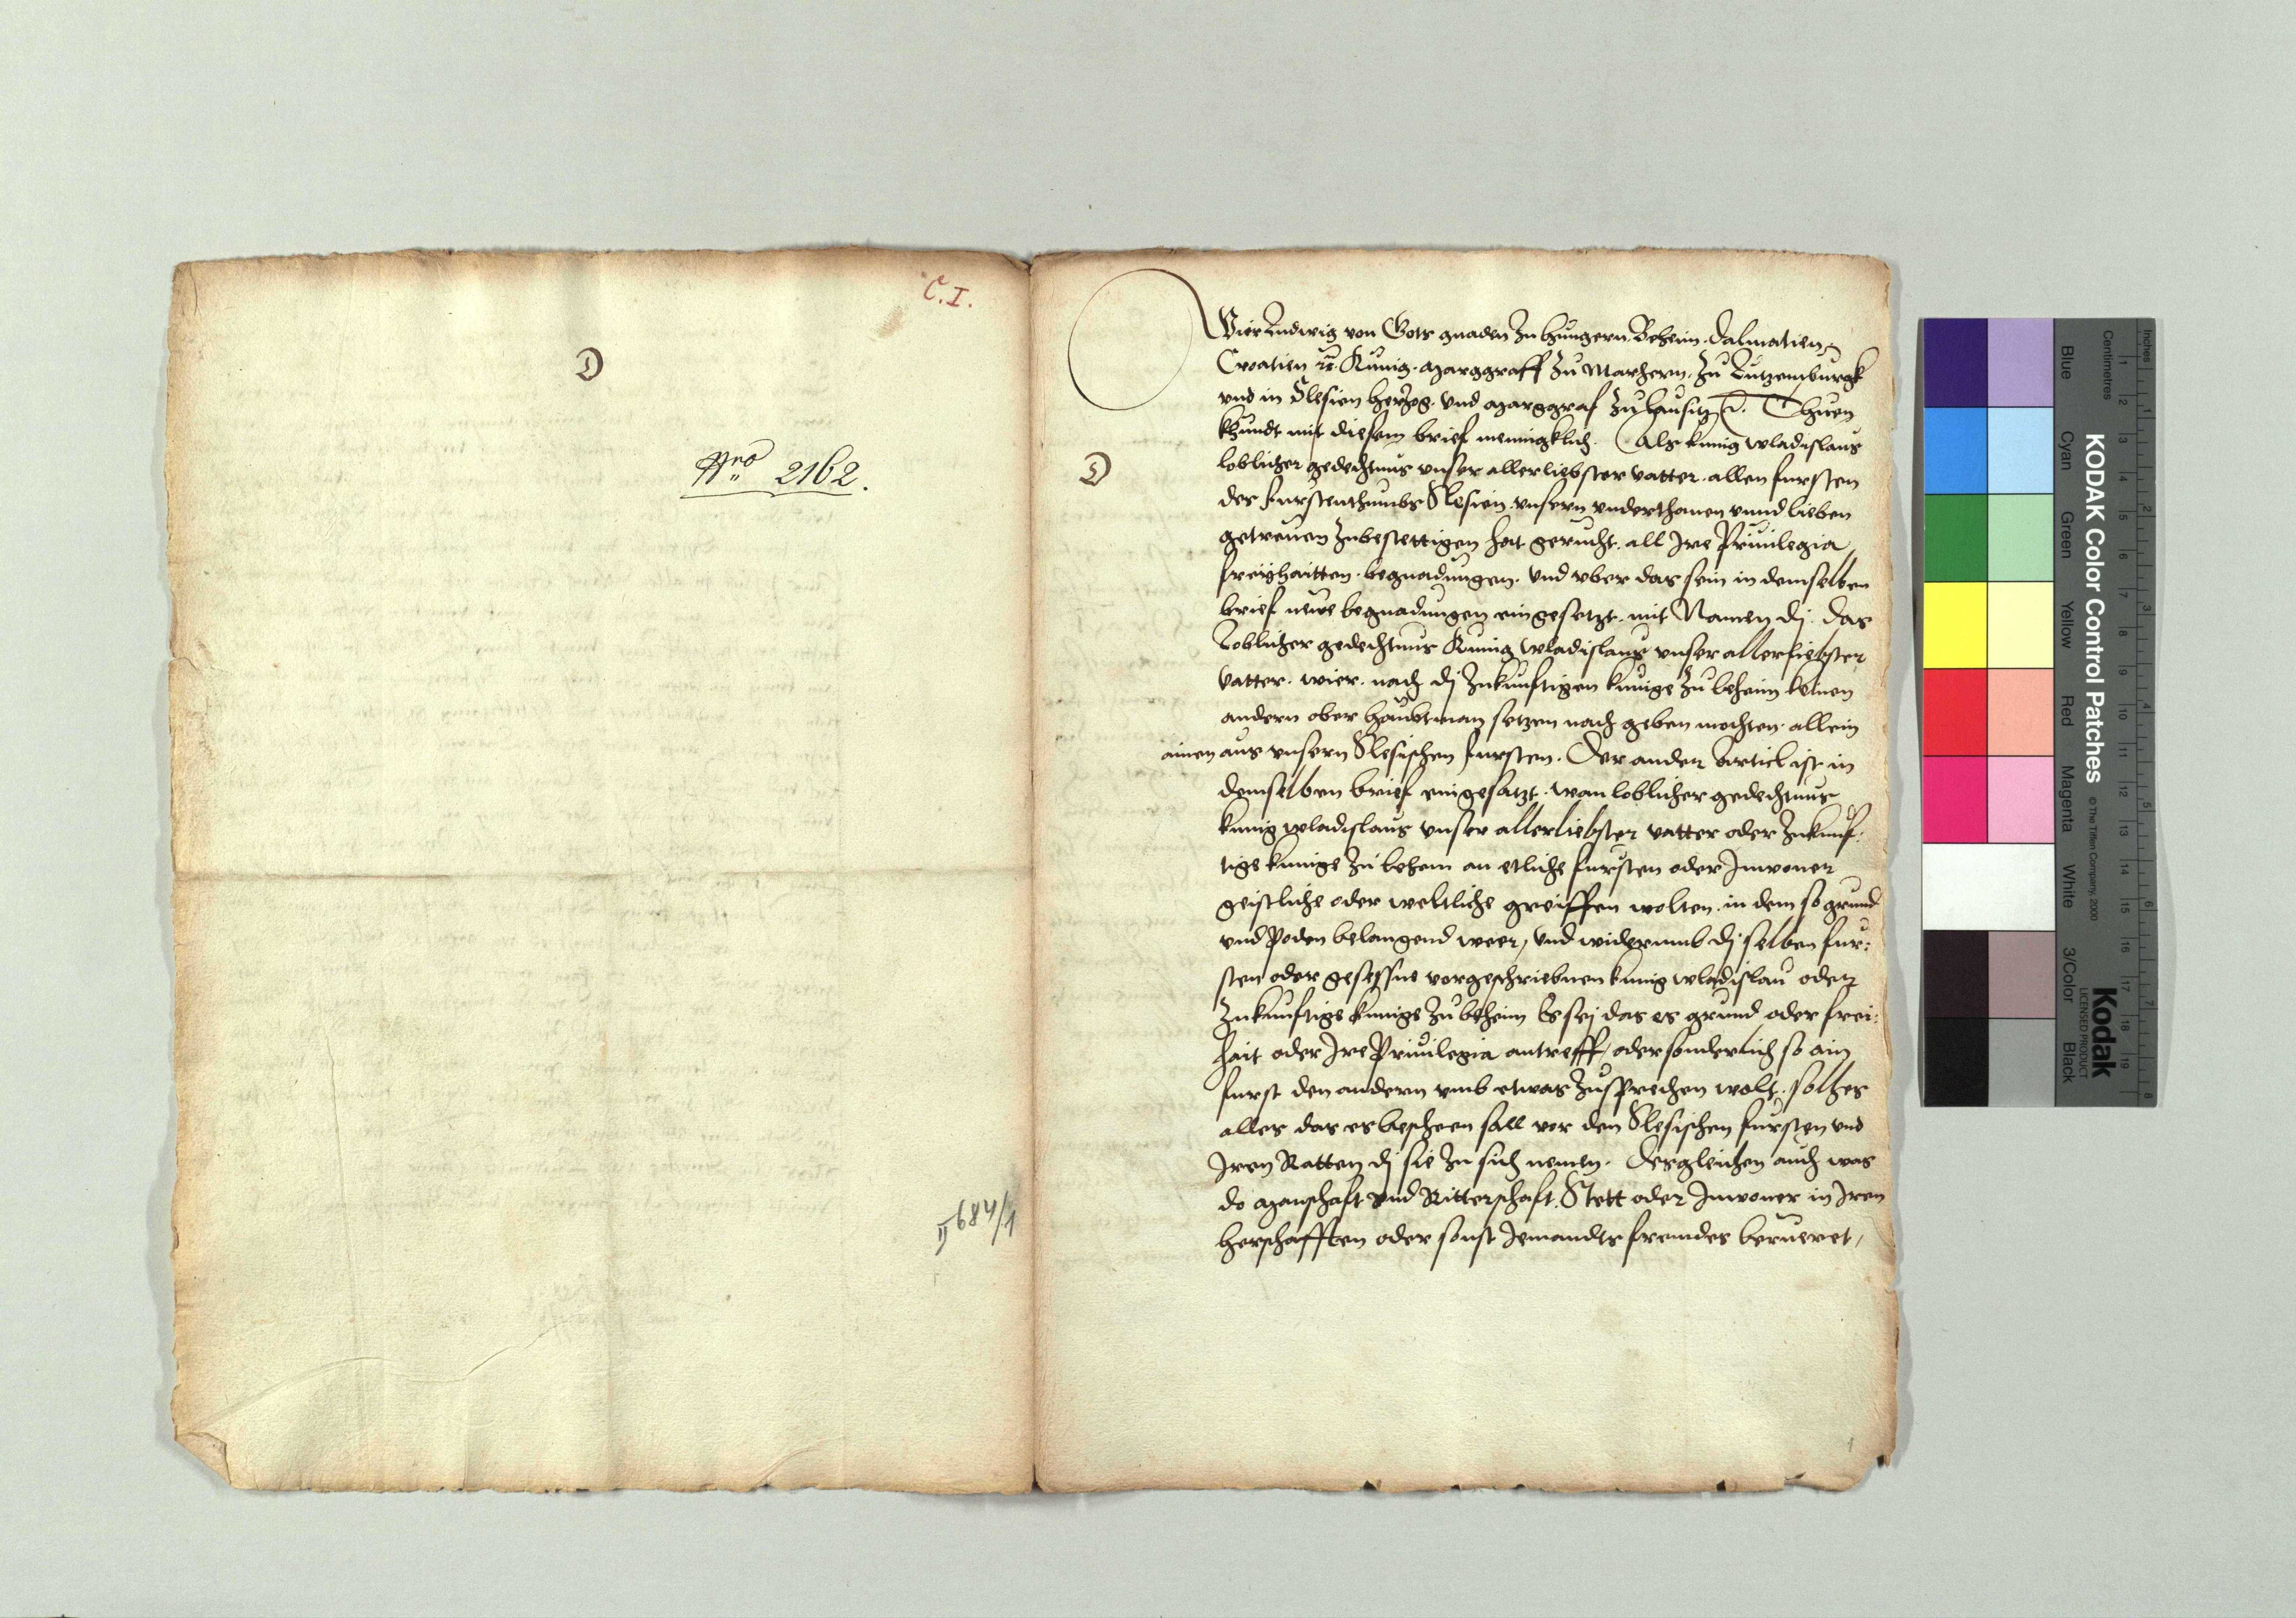 C. I.
D
Nro 2162.
II 684/1
D
Wier Ludwig von Gots gnaden Zu hungern, Beheim, Dalmatien,
Croatien etc. Kunig, Marggraff Zu Marhern, Zu Lutzemburgk
vnd in Slesien herzog, vnd Marggraf Zu lausitz etc. Thuen
khundt mit diesem brief menigklich. Als kunig wladislaus
loblicher gedechtnus vnser allerliebster vatter, allen fursten
des furstenthumbs Slesien vnsern vnderthanen vnnd lieben
getreuen Zubestettigen hat geruecht, all Ire Priuilegia,
freyhaitten, begnadungen, vnd vber das sein in demselben
brief neue begnadungen eingesetzt, mit Namen dj, das
Loblicher gedechtnus Kunig Wladislaus vnser allerliebster
vatter, wier, noch dj Zukunftigen kunige Zu beheim keinen
andern ober haubtman setzen noch geben mochten, allein
ainen aus vnsern Slesischen fursten. Der ander Artickl ist in
demselben brief eingesatzt, wan loblicher gedechtnus
kunig wladislaus vnser allerliebster vatter oder Zukunf:
tige kunige Zu behem an etliche fursten oder Inwoner
geistliche oder weltliche greiffen wolten, in dem so grund
vnd Poden belangend weer, vnd widerumb dj selben fur:
sten oder gesessne vorgeschriebnen kunig wladislau oder
Zukunftige kunige Zu beheim Es sej das es grund oder frei:
hait oder Ire Priuilegia antreff, oder sonderlich so ain
furst den andern vmb etwas Zusprechen wolt, solhes
alles das es bescheen soll vor den Slesischen fursten vnd
Iren Ratten dj sie Zu sich nemen. Desgleichen auch was
do Manschaft vnd Ritterschaft, Stett oder Inwoner in Iren
herschafften oder sonst Jemandts fremdes berueret,
1
KODAK Color Control Patches
© The Tiffen Company, 2000
Kodak
LICENSED PRODUCT
Inches
Centimetres
Blue
Cyan
Green
Yellow
Red
Magenta
White
3/Color
Black